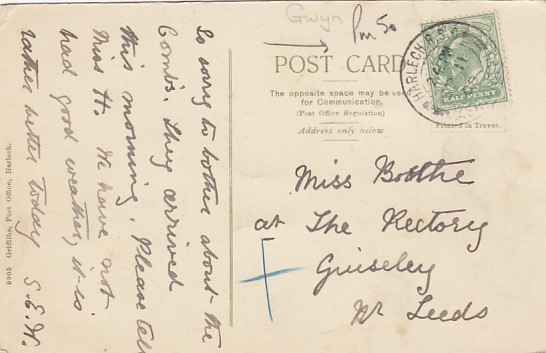 So sorry to bother about the
Combs. They arrived
this morning. Please tell
Miss H. We have not
had good weather, it is
rather better today S.E.W.
9905 Griffiths, Post Office, Harlech.
Gwyn
Pm 50
POST CARD
The opposite space may be used
for Communication.
(Post Office Regulation)
Address only below
HARLECH R.S.O.
HALF PENNY
Printed in Treves.
Miss Boothe
at The Rectory
Guiseley
Nr Leeds